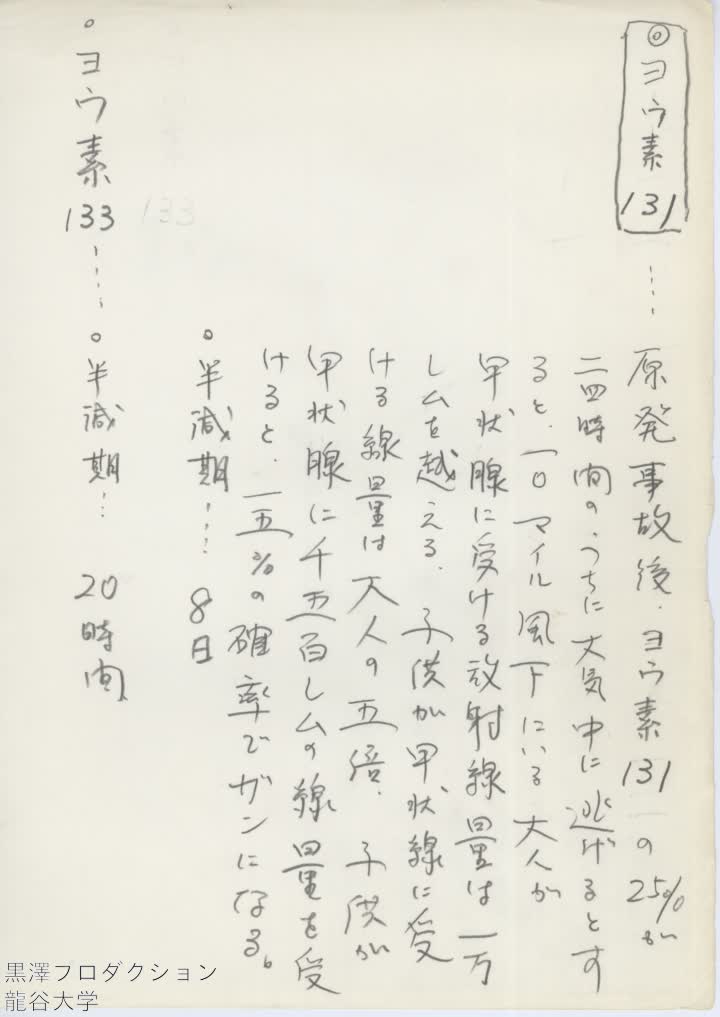 ◎ヨウ素131…… 原発事故後、ヨウ素131の25%が
二四時間のうちに大気中に逃げるとす
ると、一〇マイル風下にいる大人が
甲状腺に受ける放射線量は一万
レムを越える。子供が甲状線に受
ける線量は大人の五倍。子供が
甲状腺に千五百レムの線量を受
けると、一五%の確率でガンになる。
○半減期…… 8日
○ヨウ素133…… ○半減期… 20時間
133
黒澤プロダクション
龍谷大学